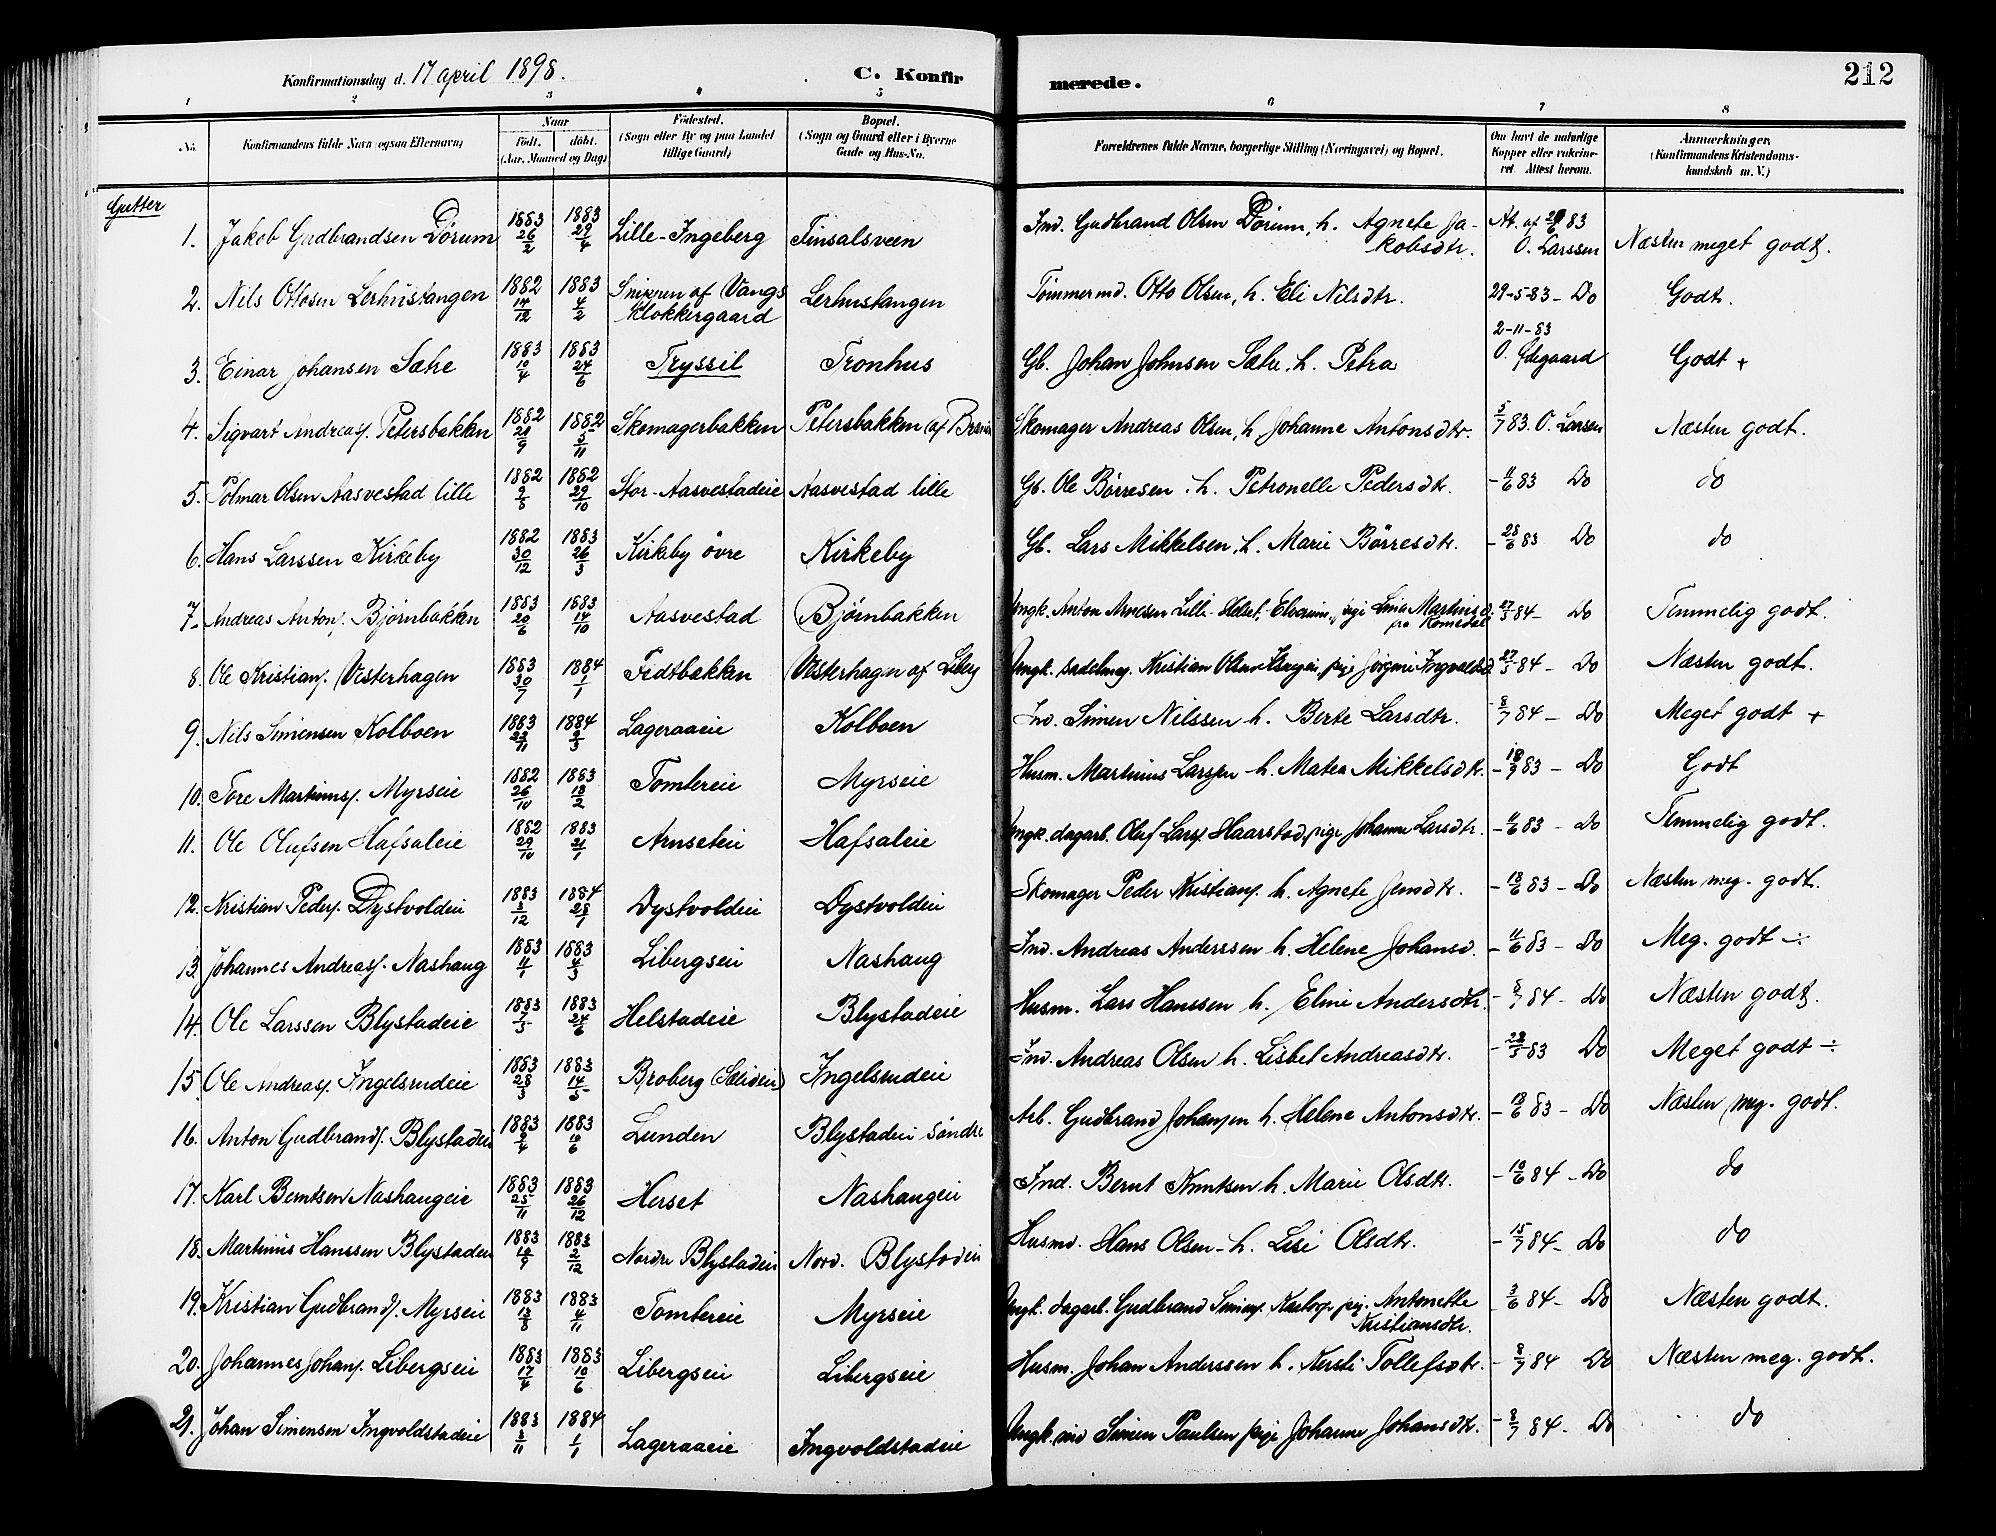 Konfirmationsdag d. 17 april 1898.
C. Konfirmerede.
212
1 2 3 4 5 6 7 8
No.
Konfirmandens fulde Navn (ogsaa Efternavn)
Naar
Født. døbt.
(Aar, Maaned og Dag)
Fødested.
(Sogn eller By og paa Landet
tillige Gaard)
Bopæl.
(Sogn og Gaard eller i Byerne
Gade og Hus-No.
Forældrenes fulde Navne, borgerlige Stilling (Næringsvei) og Bopæl.
Om havt de naturlige
Kopper eller vakcine-
ret. Attest herom.
Anmærkninger.
(Konfirmandens Kristendoms-
kundskab m. V.)
Gutter
1. Jakob Gudbrandsen Dørum 1883 26/2 1883 29/4 Lille-Ingeberg Finsalsveen Ind. Gudbrand Olsen Dørum, h. Agnete Ja-
kobsdtr. At. af 83 O. Larssen Næsten meget godt.
2. Nils Ottosen Lerhustangen 1882 14/12 1883 4/2 af Vangs
Klokkergaard Lerhustangen Tømmermd. Otto Olsen, h. Eli Nilsdtr. 29-5-83- Do Godt.
3. Einar Johansen Sæhe 1883 10/4 1883 24/6 Tryssil Tronhus Gb. Johan Johnsen Sæhe, h. Petra 2-11-83
O. Ødegaard Godt +
4. Sigvart Andreas. Petersbakken 1882 1882 5/11 Skomagerbakken Petersbakken (af Skomager Andreas Olsen, h. Johanne Antonsdtr. 5/7 83. O. Larsen Næsten godt.
5. Polmar Olsen Aasvestad lille 1882 9/8 1882 29/10 Stor-Aasvestadeie Aasvestad lille Gb. Ole Børresen. h. Petronelle Pedersdtr. - 11/6 83 Do do
6. Hans Larssen Kirkeby 1882 30/12 1883 26/3 Kirkeby øvre Kirkeby Gb. Lars Mikkelsen, h. Marie Børresdtr. - 28/6 83 Do do
7. Andreas Antons. Bjørnbakken 1883 20/6 1883 14/10 Aasvestad Bjørnbakken Ungk. Anton Arnesen Lille-Helset, Elverum, pige Martinsd.
fra Romedal 27/5 84- Do Temmelig godt.
8. Ole Kristians. Vesterhagen 1883 30/7 1884 1/1 Fedtbakken Vesterhagen af Liberg Ungk. sadelmag. Kristian Olsen pige Jørgine Ingvaldsd. 27/5 84- Do Næsten godt.
9. Nils Simensen Kolboen 1883 22/11 1884 9/3 Lageraaeie Kolboen Ind. Simen Nilssen h. Berte Larsdtr. - 8/7 84- Do Meget godt +
10. Tore Martinus. Myrseie 1882 26/10 1883 18/2 Tomtereie Myrseie Husm. Martinus Larssen h. Matea Mikkelsdtr. - 18/9 83- Do Godt
11. Ole Olufsen Hafsaleie 1882 29/10 1883 21/1 Arnseteie Hafsaleie Ungk. dagarb. Oluf Larss. Haarstad, pige Johanne Larsdtr. - 11/6 83- Do Temmelig godt.
12. Kristian Peders. Dystvoldeie 1883 3/12 1884 28/1 Dystvoldeie Dystvoldeie Skomager Peder Kristians. h. Agnete Jensdtr. - 18/6 83- Do Næsten meg. godt.
13. Johannes Andreas. Nashaug 1883 11/1 1883 4/3 Libergseie Nashaug Ind. Andreas Anderssen h. Helene Johansd. - 11/6 83- Do Meg. godt ÷
14. Ole Larssen Blystadeie 1883 7/3 1883 24/6 Helstadeie Blystadeie Husm. Lars Hanssen h. Eline Andersdtr. - 8/7 84- Do Næsten godt.
15. Ole Andreas. Ingelsrudeie 1883 28/3 1883 14/5 Broberg (Sælideie) Ingelsrudeie Ind. Andreas Olsen h. Lisbet Andreasdtr. - 28/5 83 Do Meget godt ÷
16. Anton Gudbrands. Blystadeie 1883 9/4 1883 10/6 Lunden Blystadeie søndre Arb. Gudbrand Johansen h. Helene Antonsdtr. - 18/6 83- Do Næsten meg. godt.
17. Karl Berntsen Nashaugeie 1883 25/11 1883 26/12 Herset Nashaugeie Ind. Bernt Knutsen h. Marie Olsdtr. - 10/6 84- Do do
18. Martinus Hanssen Blystadeie 1883 10/9 1883 2/12 Nordre Blystadeie Nord. Blystadeie Husmd. Hans Olsen- h. Lisi Olsdtr. - 15/7 84- Do do
19. Kristian Gudbrands. Myrseie 1883 13/8 1883 4/11 Tomtereie Myrseie Ungk. dagarb. Gudbrand Simens. pig. Antonette
Kristiansdtr. - 3/6 84- Do Næsten godt.
20. Johannes Johans. Libergseie 1883 17/4 1883 10/6 Libergseie Libergseie Husm. Johan Anderssen h. Kersti Tollefsdtr. - 8/7 84 Do Næsten meg. godt.
21. Johan Simensen Ingvoldstadeie 1883 3/11 1884 1/1 Lageraaeie Ingvoldstadeie Ungk. ind Simen Paulsen pige Johanne Johansdtr. - 8/7 84- Do do